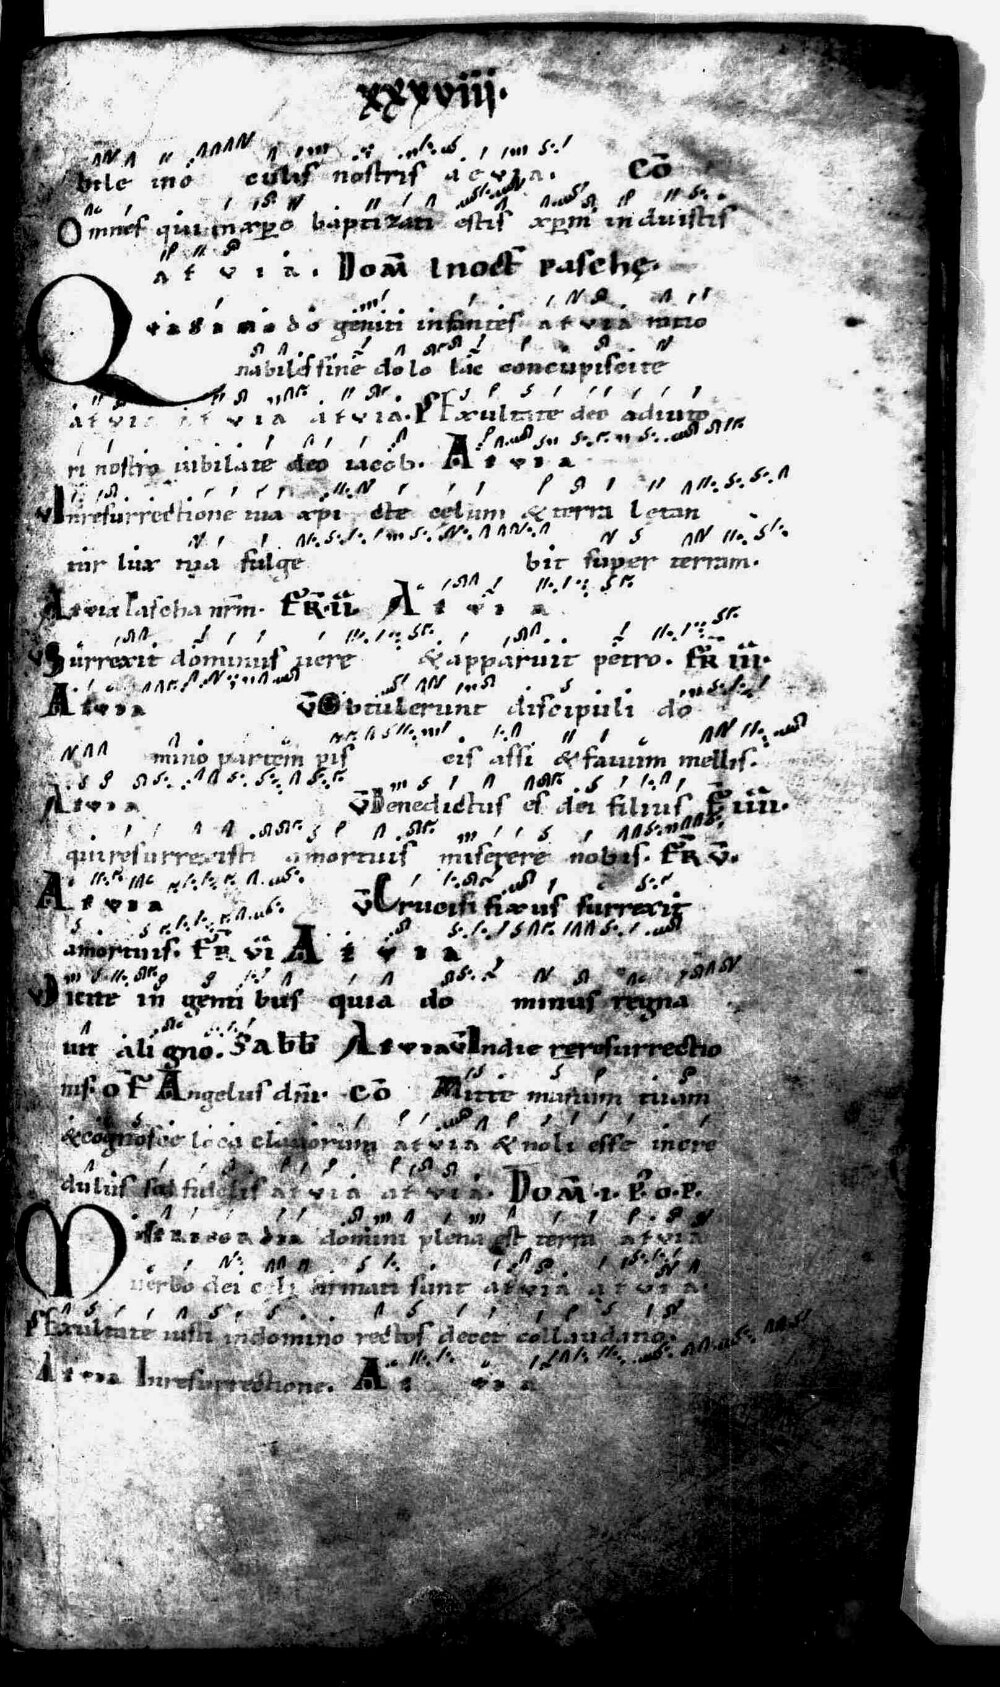 xxxviii.
bile in o culis nostris aevia. Co̅
Omnes qui in xp̅o baptizati estis xp̅m induistis
aevia. Dom̅ I n oct̅ pasche.
Quasi modo geniti infantes aevia ratio
nabiles sine dolo lac concupiscite
aevia aevia aevia. Ps Exultate deo adiuto
ri nostro iubilate deo iacob. Aevia
V̅ Inresurrectione tua xp̅i celum & terra letan
tur lux tua fulge bit super terram.
Aevia Pascha nr̅m. Fr̅ ii Aevia
V̅ Surrexit dominus vere & apparuit petro. Fr̅ iii.
Aevia V̅ Obtulerunt discipuli do
mino partem pis cis assi & fauum mellis.
Aevia V̅ Benedictus es dei filius Fr̅ iiii.
qui resurrexisti amortuis miserere nobis. Fr̅ v.
Aevia V̅ Crucifi fixus surrexit
amortuis. Fr̅ vi Aevia
V̅ Dicite in genti bus quia do minus regna
uit a li gno. Sabb̅ Aevia V̅ In die reresurrectio
nis. of̅ Angelus dn̅i. co̅ Mitte manum tuam
& cognosce loca clauorum aevia & noli esse incre
dulus sed fidelis aevia aevia. Dom̅ .i. P. o. P.
Misericordia domini plena est terra aevia
uerbo dei celi firmati sunt aevia aevia.
Ps Exultate iusti indomino rectos decet collaudatio.
Aevia Inresurrectione. Aevia